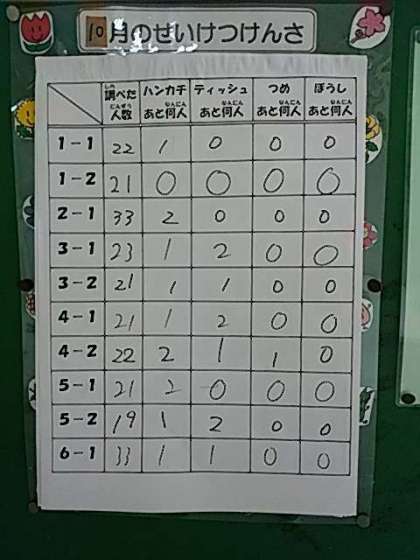 10月のせいけつけんさ
調べた人数 ハンカチあと何人 ティッシュあと何人 つめあと何人 ぼうしあと何人
1-1 22 1 0 0 0
1-2 21 0 0 0 0
2-1 33 2 0 0 0
3-1 23 1 2 0 0
3-2 21 1 1 0 0
4-1 21 1 2 0 0
4-2 22 2 1 1 0
5-1 21 2 0 0 0
5-2 19 1 2 0 0
6-1 33 1 1 0 0